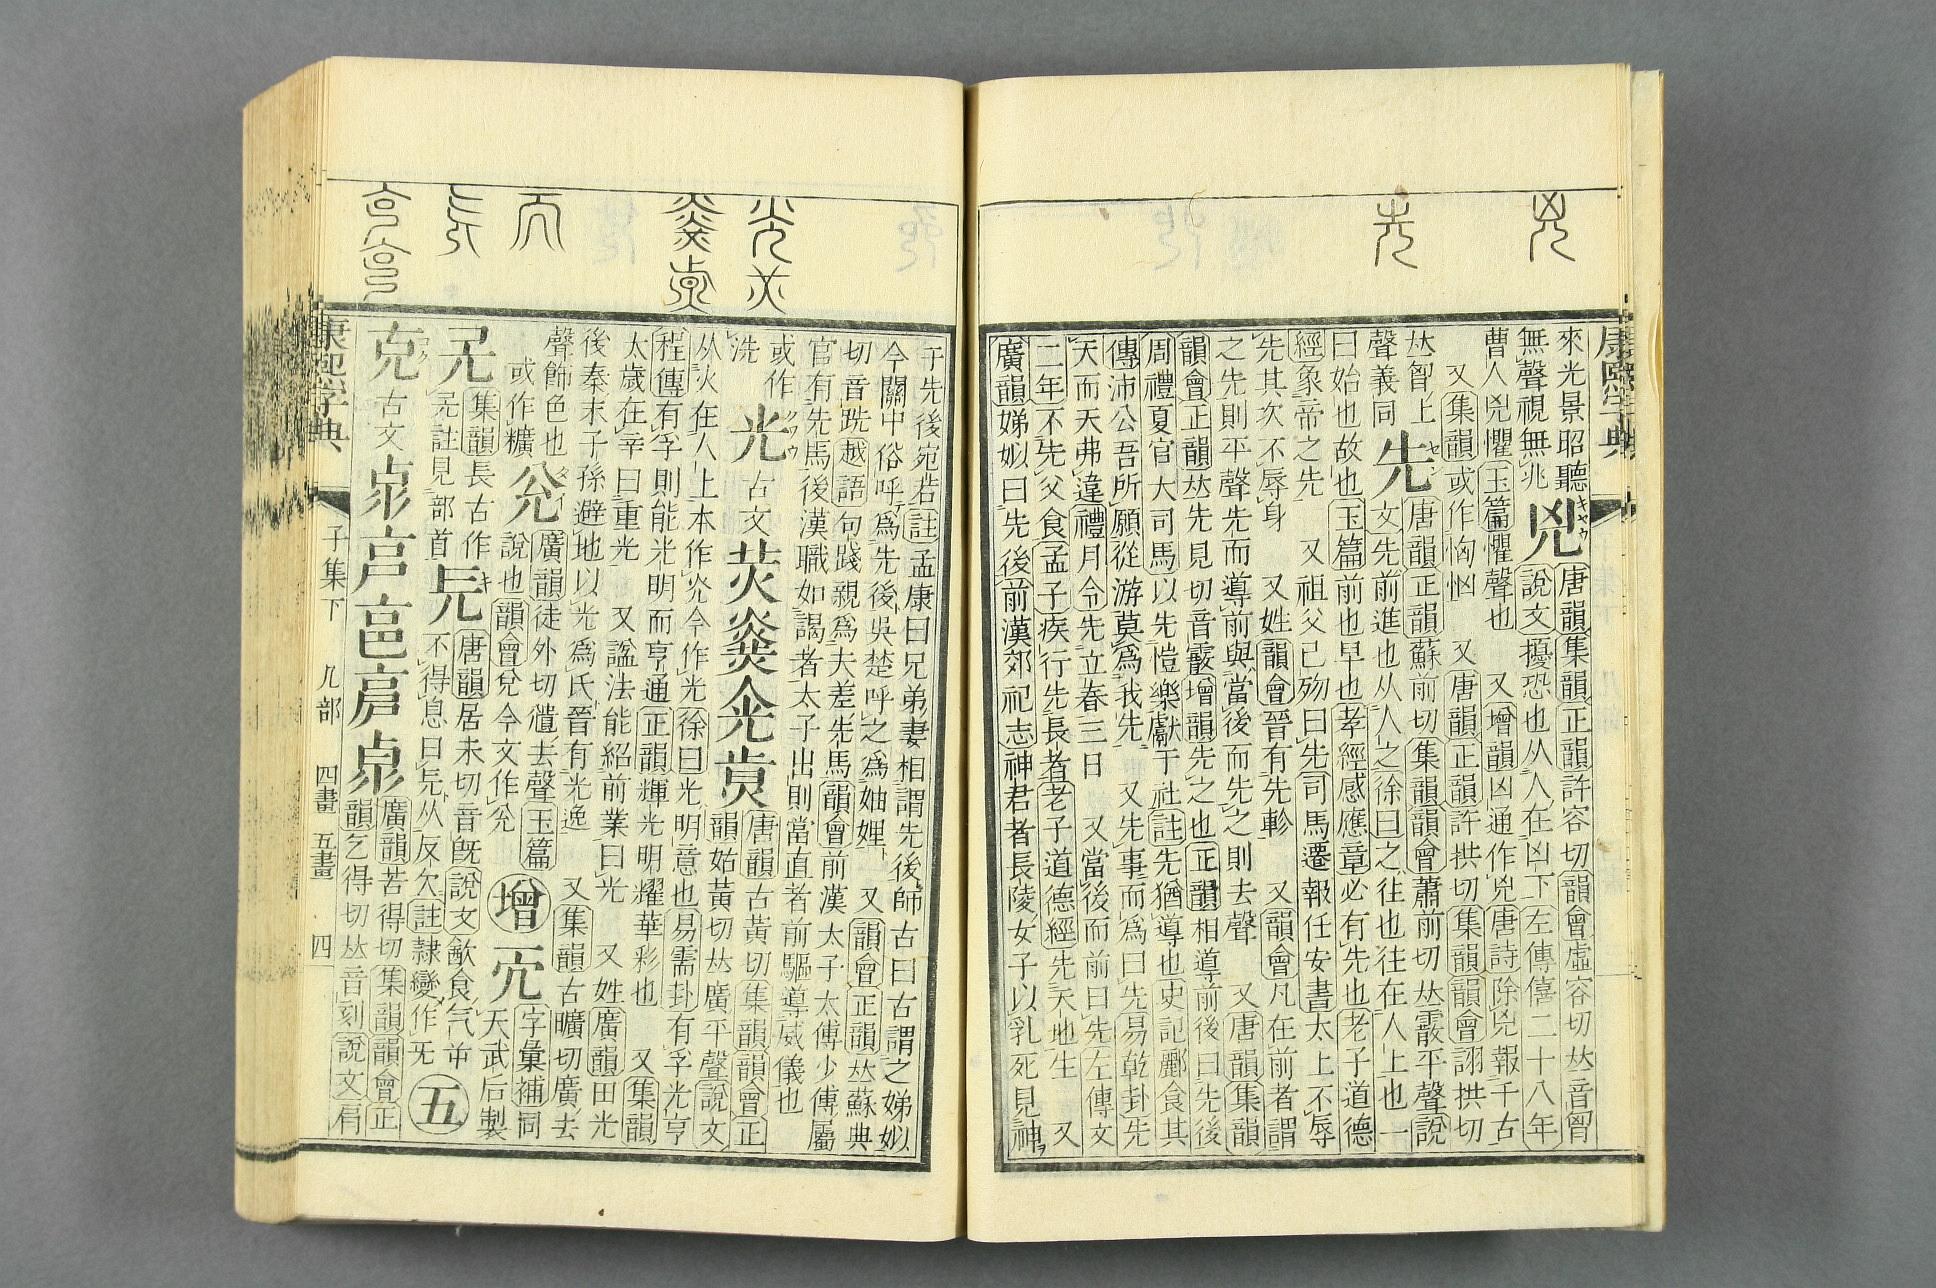 康熙字典
來光景昭聽
無聲視無兆
兇
唐韻集韻正韻許容切韻會虛容切𠀤音匈
說文擾恐也从人在凶下左傳僖二十八年
曹人兇懼玉篇懼聲也 又增韻凶通作兇唐詩除兇報千古
又集韻或作恟忷 又唐韻正韻許拱切集韻韻會詡拱切
𠀤匈上
聲義同
先
唐韻正韻蘇前切集韻韻會蕭前切𠀤霰平聲說
文先前進也从人之徐曰之往也往在人上也一
曰始也故也玉篇前也早也孝經感應章必有先也老子道德
經象帝之先 又祖父已歿曰先司馬遷報任安書太上不辱
先其次不辱身 又姓韻會晉有先軫 又韻會凡在前者謂
之先則平聲先而導前與當後而先之則去聲 又唐韻集韻
韻會正韻𠀤先見切音霰增韻先之也正韻相導前後曰先後
周禮夏官大司馬以先愷樂獻于社註先猶導也史記酈食其
傳沛公吾所願從游莫爲我先 又先事而爲曰先易乾卦先
天而天弗違禮月令先立春三日 又當後而前曰先左傳文
二年不先父食孟子疾行先長者老子道德經先天地生 又
廣韻娣姒曰先後前漢郊祀志神君者長陵女子以乳死見神
于先後宛若註孟康曰兄弟妻相謂先後師古曰古謂之娣姒
今關中俗呼爲先後吳楚呼之爲妯娌 又韻會正韻𠀤蘇典
切音跣越語句踐親爲夫差先馬韻會前漢太子太傅少傅屬
官有先馬後漢職如謁者太子出則當直者前驅導威儀也
或作
洗
光
古文
灮炗
唐韻古黃切集韻韻會正
韻姑黃切𠀤廣平聲說文
从火在人上本作灮今作光徐曰光明意也易需卦有孚光亨
程傳有孚則能光明而亨通正韻輝光明耀華彩也 又集韻
太歲在辛曰重光 又諡法能紹前業曰光 又姓廣韻田光
後秦末子孫避地以光爲氏晉有光逸 又集韻古曠切廣去
聲飾色也
或作㶂
兊
廣韻徒外切㣢去聲玉篇
說也韻會兌今文作兊
增
𠑹
字彙補同
天武后製
兏
集韻長古作
兏註見部首
旡
唐韻居未切音旣說文㱃食气屰
不得息曰旡从反欠註隷變作旡
五
克
古文
廣韻苦得切集韻韻會正
韻乞得切𠀤音刻說文肩
康熙字典
子集下
儿部
四畫
五畫
四